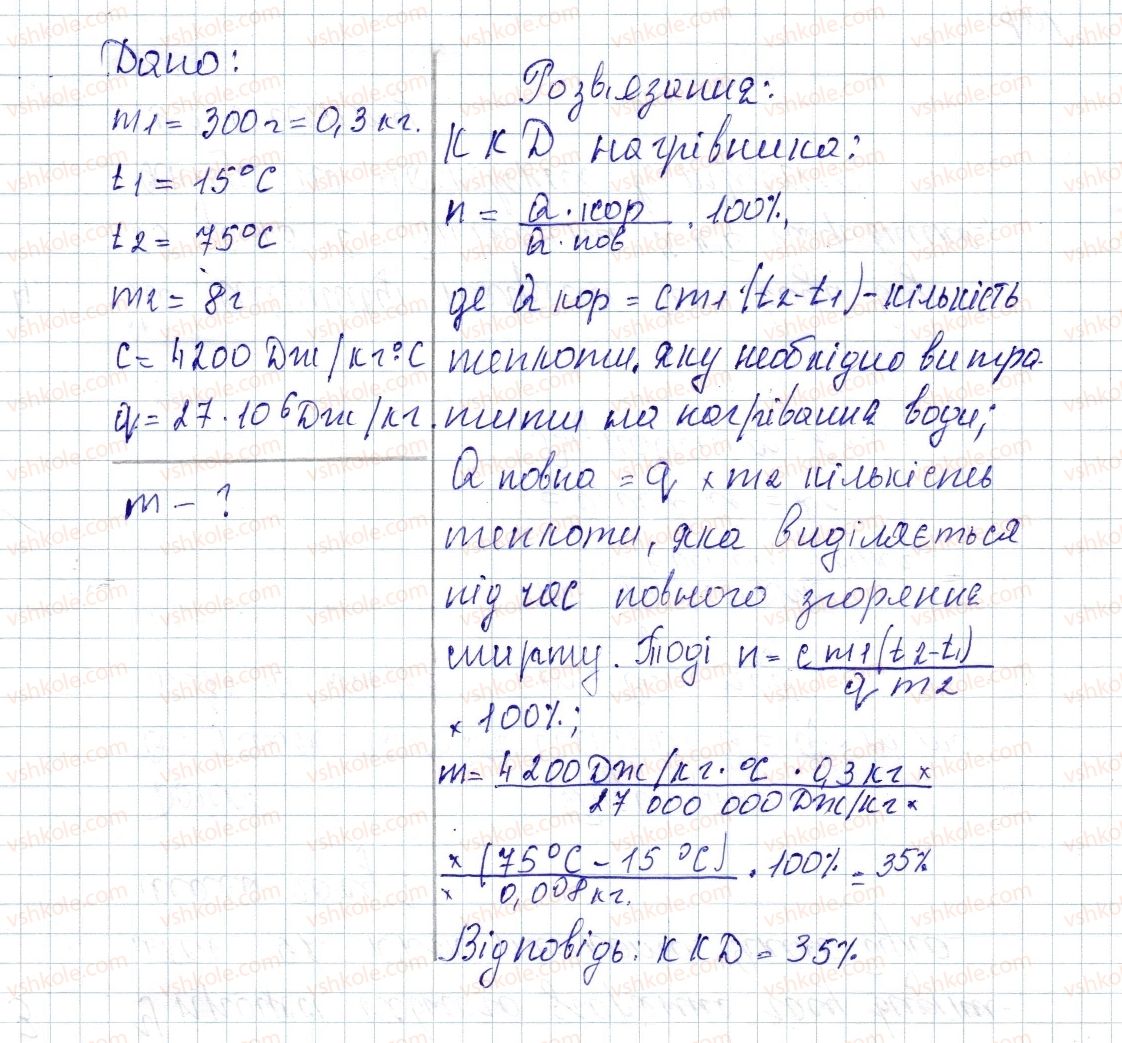 Дано:
m1 = 300г = 0,3 кг.
t1 = 15°C
t2 = 75°C
m2 = 8г
c = 4200 Дж/кг°C
q = 27 · 10⁶ Дж/кг.
m – ?
Розвязання:
ККД нагрівника:
n = Q·кор / Q·пов · 100%,
де Q кор = cm1·(t2-t1) – кількість
теплоти, яку необхідно витра-
тити на нагрівання води;
Q повна = q × m2 кількість
теплоти, яка виділяється
під час повного згоряння
спирту. Тоді n = cm1(t2-t1) / q m2
× 100%;
m = 4200 Дж/кг·°C · 0,3 кг × / 27 000 000 Дж/кг ×
× (75°C – 15°C) / × 0,008 кг. · 100% = 35%
Відповідь: ККД = 35%